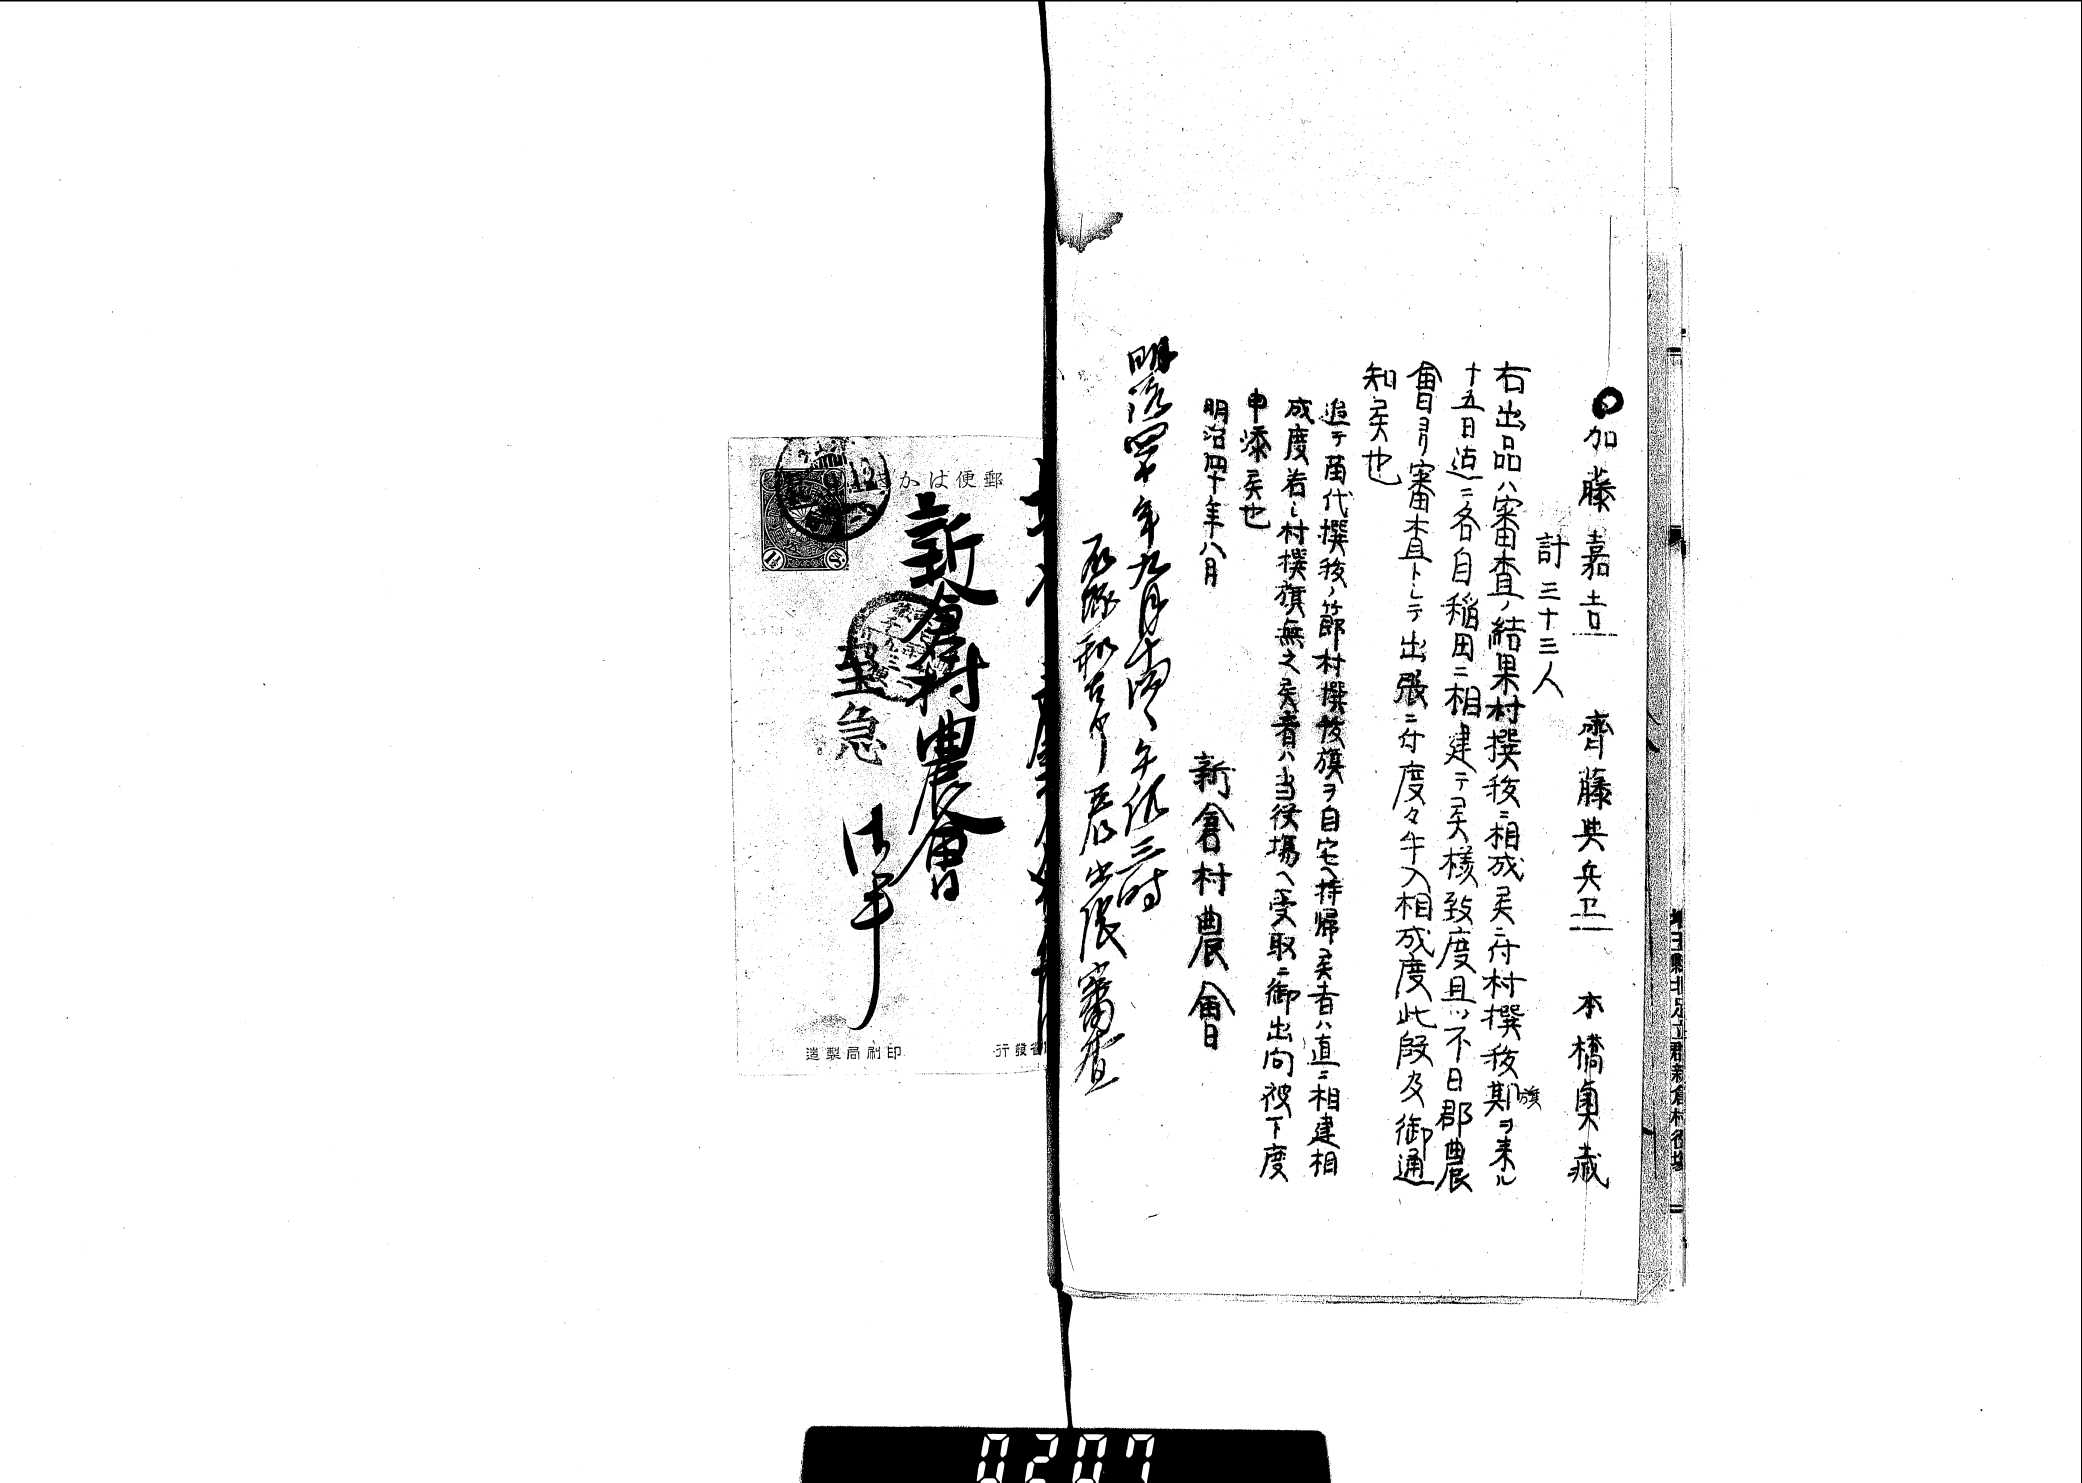 加藤嘉吉 齊藤與兵卫 本橋奥蔵
計三十三人
右出品ハ審査ノ結果村撰抜ニ相成候ニ付村撰抜旗ヲ来ル
十五日迠ニ各自稲田ニ相建テ候様致度且ツ不日郡農
會ヨリ審査トシテ出張ニ付度々手入相成度此段及御通
知候也
追テ苗代撰抜ノ節村撰抜旗ヲ自宅ヘ持帰候者ハ直ニ相建相
成度若シ村撰旗無之候者ハ当役場ヘ受取ニ御出向被下度
申添候也
明治四十年八月
新倉村農會
明治四十年九月十四日午后三時
出張審査
郵便はかき
新倉村農會
至急
御中
印刷局製造
埼玉縣北足立郡新倉村役塲
0207